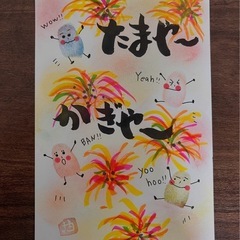 wow!!
たまや〜
Yeah!!
かぎや〜
BAN!!
yoo
hoo!!